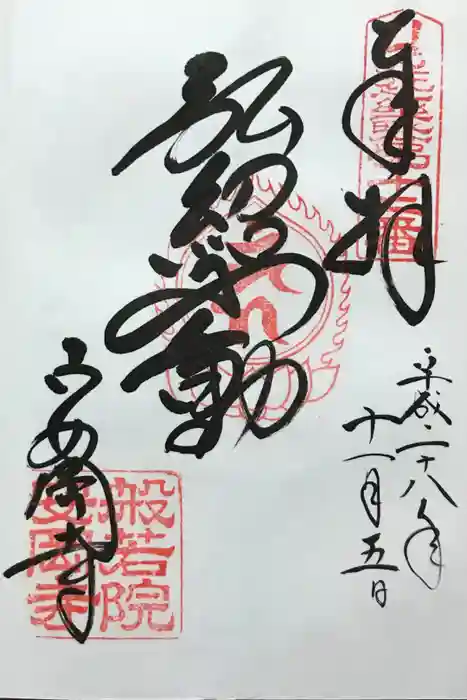 奉拝
平成二十八年
十一月五日
弘紹不動
安國寺
般若院
安國寺